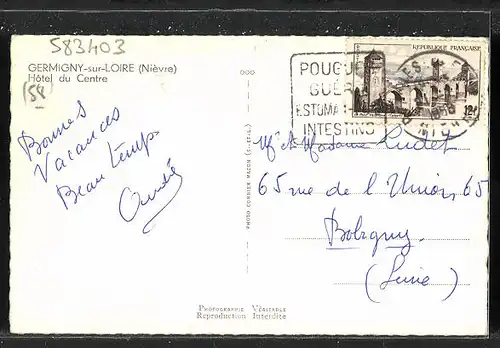 583403
GERMIGNY-sur-LOIRE (Nièvre)
Hôtel du Centre
(58)
Bonnes
Vacances
Beau temps
André
PHOTO COMBIER MACON (S.-ET-L.)
POUGUES
GUÉRI
ESTOMAC
INTESTINS
REPUBLIQUE FRANÇAISE
12F
Mr et Madame Cudet
65 rue de l'Union 65
Bobigny.
(Seine)
PHOTOGRAPHIE VÉRITABLE
Reproduction Interdite